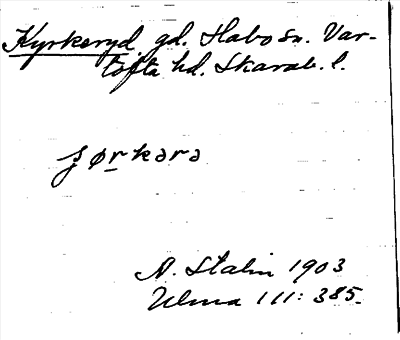 Kyrkeryd, gd. Habo sn. Var-
tofta hd. Skarab. l.
ʒørkərə
A. Stalin 1903
Ulma 111: 385.